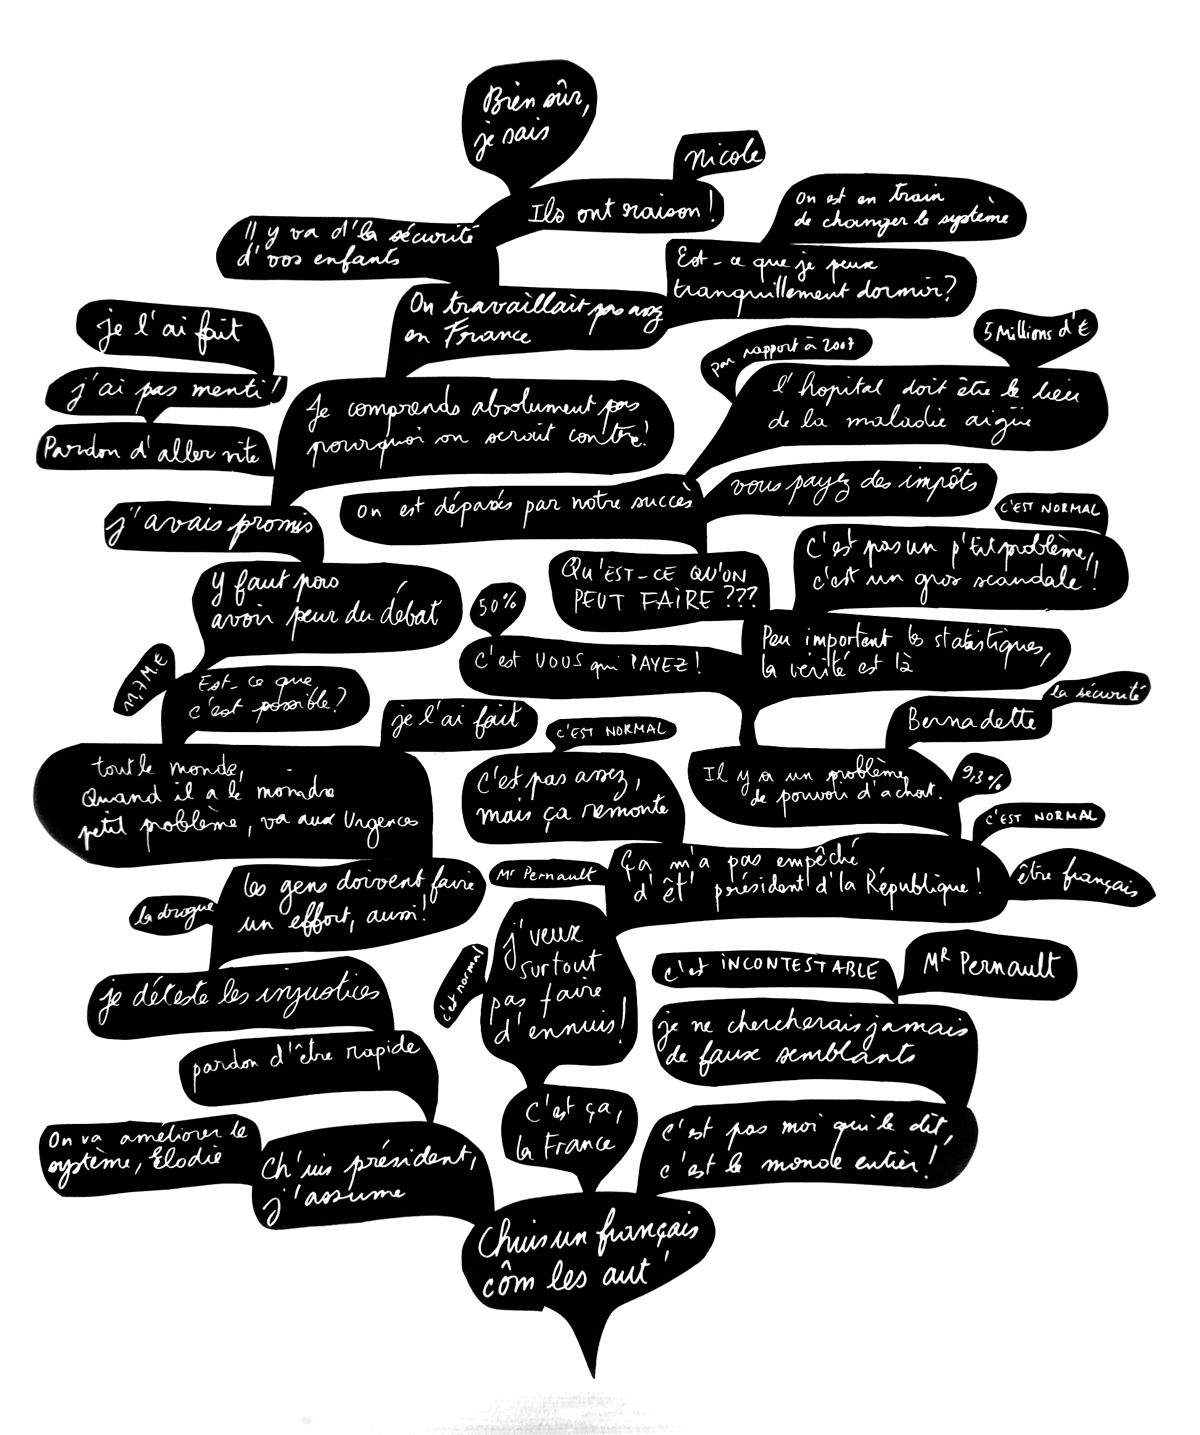 Bien sûr,
je sais
Nicole
Ils ont raison !
On est en train
de changer le système
Il y va d'la sécurité
d'vos enfants
Est-ce que je peux
tranquillement dormir ?
On travaillait pas assez
en France
je l'ai fait
5 Millions d'€
par rapport à 2007
j'ai pas menti !
l'hopital doit être le lieu
de la maladie aigüe
Je comprends absolument pas
pourquoi on serait contre !
Pardon d'aller vite
vous payez des impôts
on est dépassés par notre succès
C'EST NORMAL
j'avais promis
C'est pas un p'tit problème,
c'est un gros scandale !
QU'EST-CE QU'ON
PEUT FAIRE ???
Y faut pas
avoir peur du débat
50%
Peu importent les statistiques,
la vérité est là
C'est VOUS qui PAYEZ !
Est-ce que
c'est possible ?
la sécurité
je l'ai fait
Bernadette
C'EST NORMAL
tout le monde,
Quand il a le moindre
petit problème, va aux Urgences
C'est pas assez,
mais ça remonte
Il y a un problème
de pouvoir d'achat.
9,3%
C'EST NORMAL
Ça m'a pas empêché
d'êt' président d'la République !
être français
Mr Pernault
les gens doivent faire
un effort, aussi !
la drogue
j'veux
surtout
pas faire
d'ennuis !
c'est normal
c'est INCONTESTABLE
MR Pernault
je déteste les injustices
je ne chercherais jamais
de faux semblants
pardon d'être rapide
C'est ça,
la France
c'est pas moi qui le dit,
c'est le monde entier !
On va améliorer le
système, Élodie
Ch'uis président,
j'assume
Chuis un français
côm les aut'